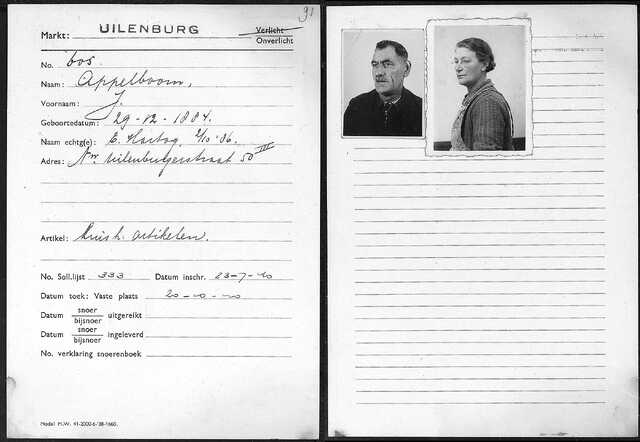 91
Markt: UILENBURG Verlicht
Onverlicht
No. 605.
Naam: Appelboom,
Voornaam: J.
Geboortedatum: 29-12-1884.
Naam echtg(e): E. Hartog 2/10-'86.
Adres: Nw. Uilenburgerstraat 50 III
Artikel: Huish. artikelen.
No. Soll.lijst 333 Datum inschr. 23-7-40
Datum toek: Vaste plaats 20-10-40
Datum snoer/bijsnoer uitgereikt
Datum snoer/bijsnoer ingeleverd
No. verklaring snoerenboek
Model M.W. 41-2000-6/38-1660.